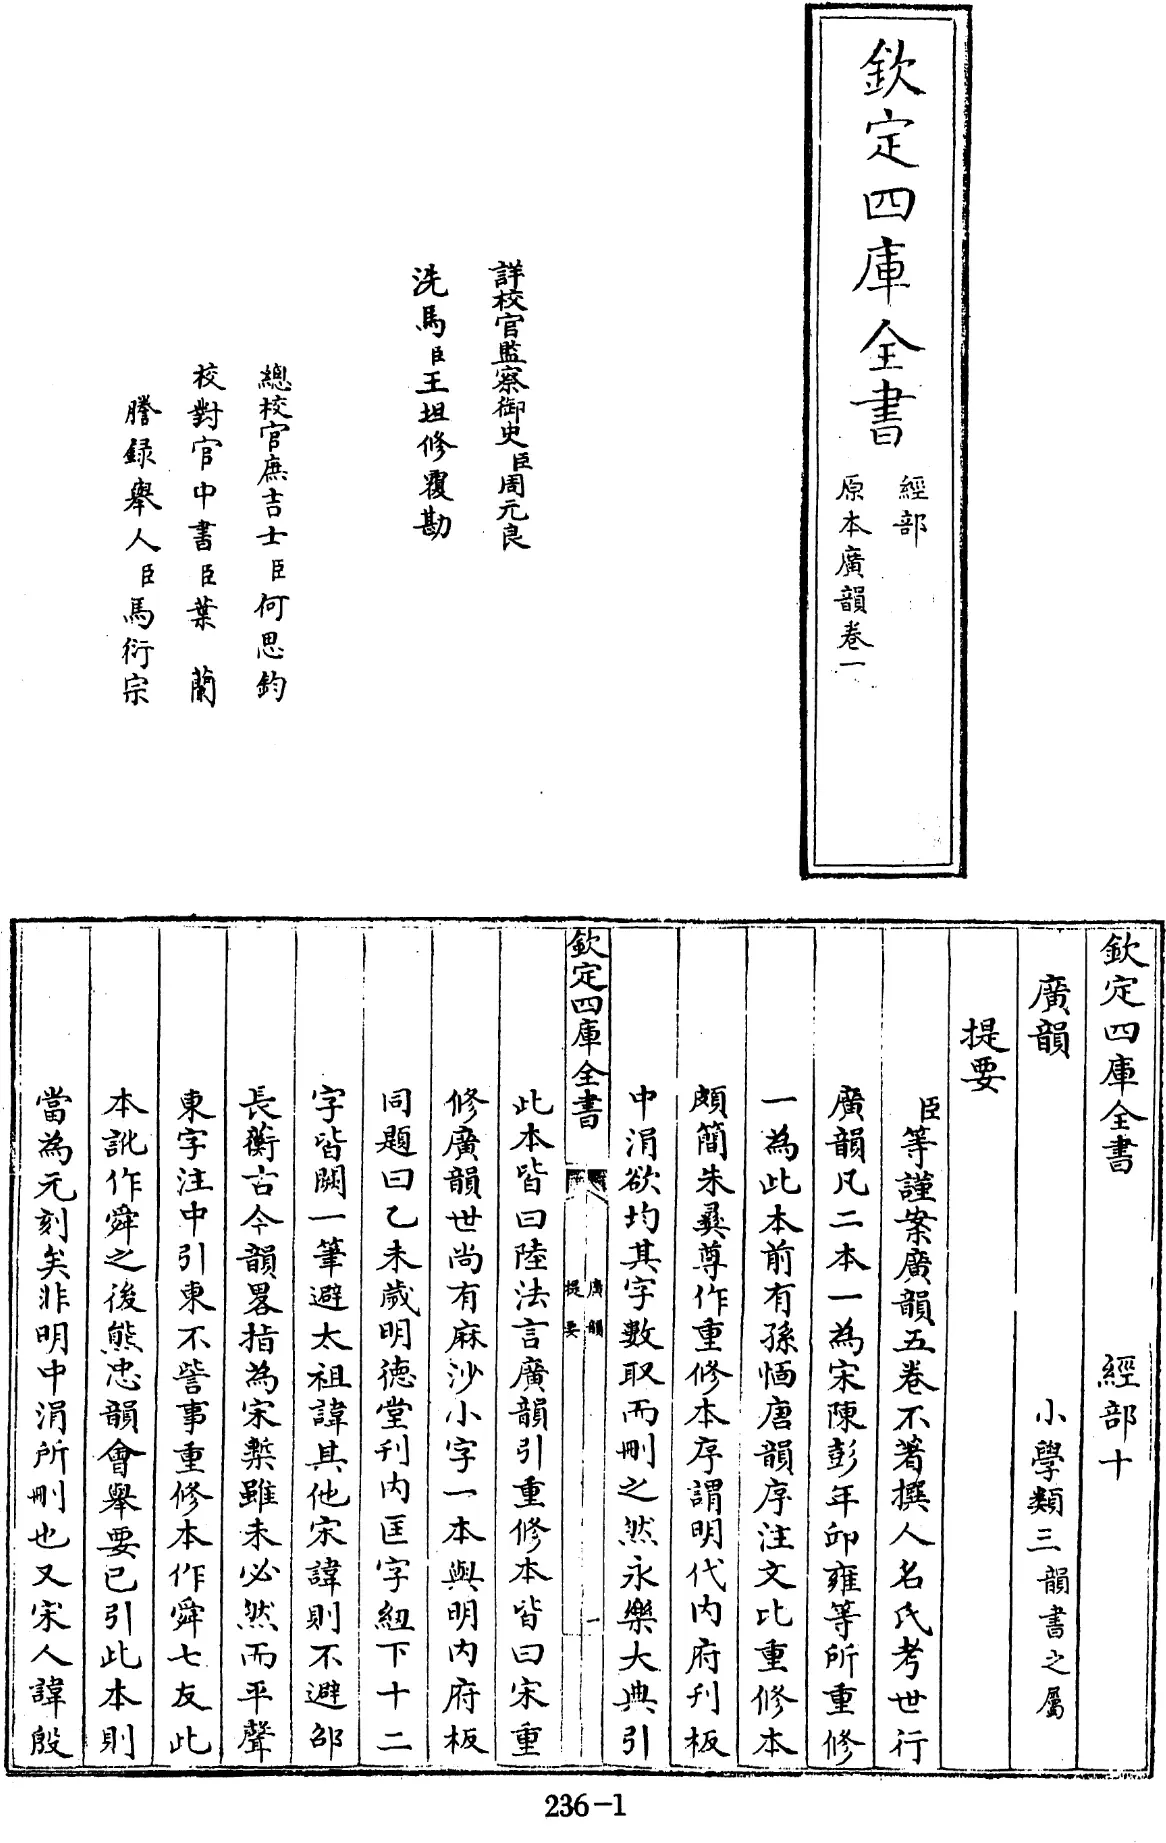 欽定四庫全書
經部
原本廣韻卷一
詳校官監察御史臣周元良
洗馬臣王坦修覆勘
總校官庶吉士臣何思鈞
校對官中書臣葉蘭
謄録舉人臣馬衍宗
欽定四庫全書 經部十
廣韻 小學類三韻書之屬
提要
臣等謹案廣韻五卷不著撰人名氏考世行
廣韻凡二本一為宋陳彭年邱雍等所重修
一為此本前有孫愐唐韻序注文比重修本
頗簡朱彝尊作重修本序謂明代内府刋板
中涓欲均其字數取而刪之然永樂大典引
欽定四庫全書
廣韻
提要
一
此本皆曰陸法言廣韻引重修本皆曰宋重
修廣韻世尚有麻沙小字一本與明内府板
同題曰乙未歲明德堂刋内匡字紐下十二
字皆闕一筆避太祖諱其他宋諱則不避邵
長蘅古今韻畧指為宋槧雖未必然而平聲
東字注中引東不訾事重修本作舜七友此
本訛作舜之後熊忠韻會舉要已引此本則
當為元刻矣非明中涓所刪也又宋人諱殷
236-1